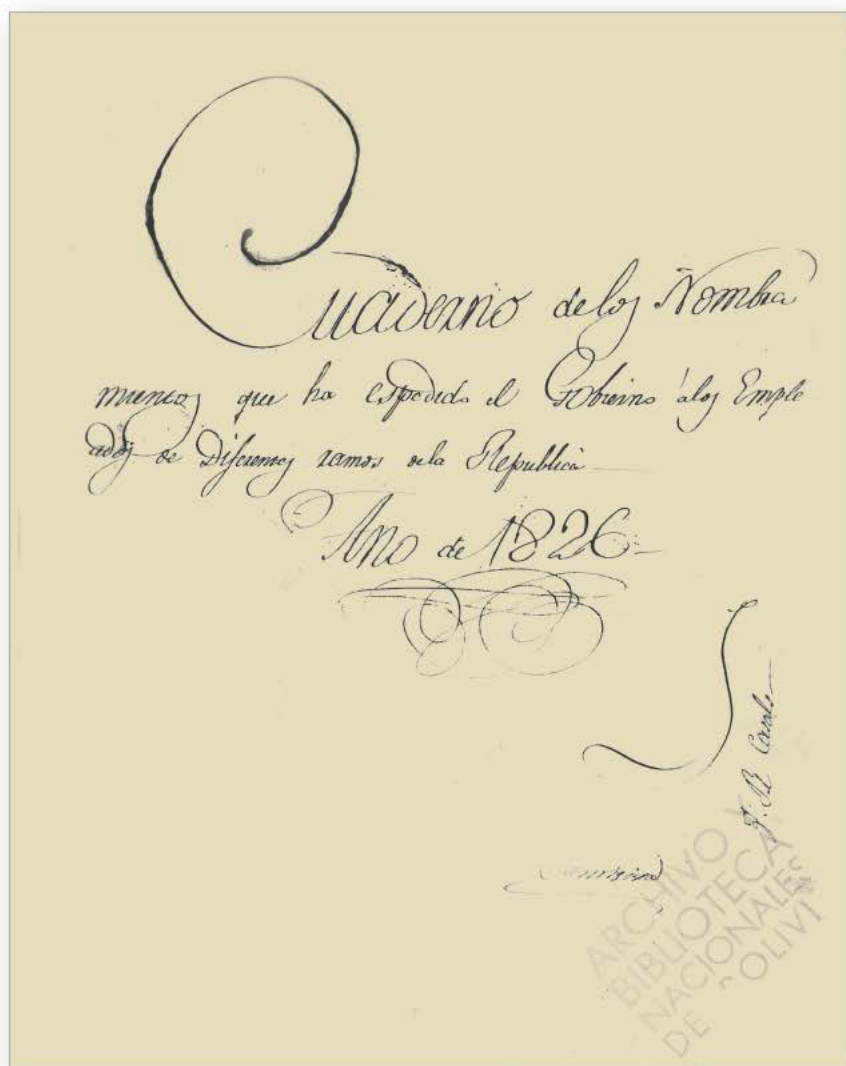 Cuaderno delos Nombra
mientos que ha espedido el Gobierno álos Emple
ados de Diferentes ramos dela Republica
Año de 1826
ARCHIVO Y
BIBLIOTECA
NACIONALES
DE BOLIVI